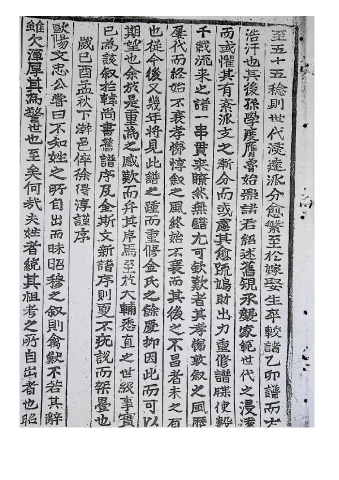 至五十五稔則世代浸遠派分愈繁至於嫁娶生卒較諸乙卯譜而
浩汗也其後孫學慶膺魯始熙諸君紹述舊規承襲家範世代之浸
而或懼其有紊派支之漸分而或慮其愈疏鳩財出力重修譜牒使數
千載流來之譜一串貫來瞭然無礙尤可欽歎者其孝悌敦叙之風歷
屢代而終始不衰孝悌惇叙之風終始不衰而其後之不昌者未之有
也從今後又幾年將見此譜之踵而重修金氏之餘慶抑因此而可以
期望也余於是重爲之感歎而弁其序焉至於大輔悉直之世級事實
已爲該叙於韓尚書舊譜序及金斯文新譜序則更不玩說而架疊也
歲已酉孟秋下澣邑倅徐得淳謹序
歐陽文忠公嘗曰不知姓之所自出而昧昭穆之叙則禽獸不若其辭
雖欠渾厚其爲警世也至矣何哉夫姓者統其祖考之所自出者也昭